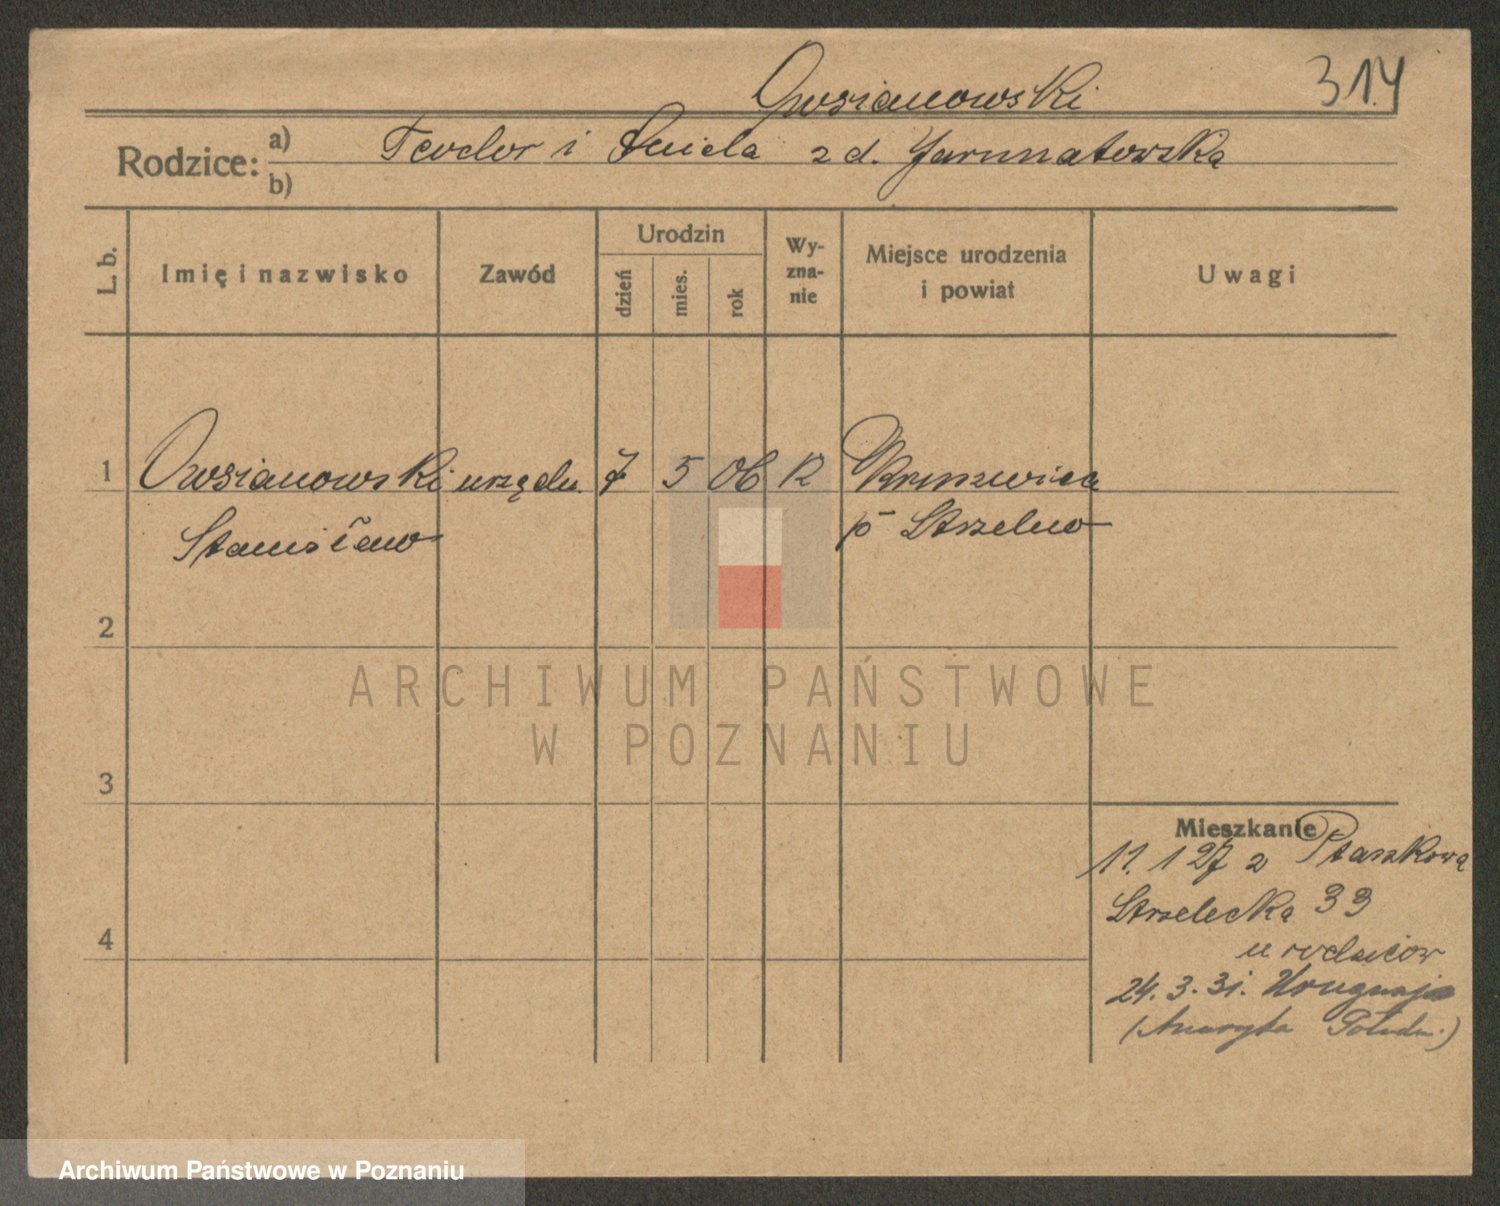 Owsianowski
314
Rodzice:
a) Teodor i Aniela z d. Jarmatowska
b)
L. b.
Imię i nazwisko
Zawód
Urodzin
dzień
mies.
rok
Wy-
zna-
nie
Miejsce urodzenia
i powiat
Uwagi
1 Owsianowski urzędn. 7 5 06 R Kruszwica
Stanisław p Strzelno
2
3
4
Mieszkanie
11. 1 27 z Ptaszkową
Strzelecka 33
u rodziców
24. 3. 31. Urugwaj
(Ameryka Połudn.)
ARCHIWUM PAŃSTWOWE
W POZNANIU
Archiwum Państwowe w Poznaniu